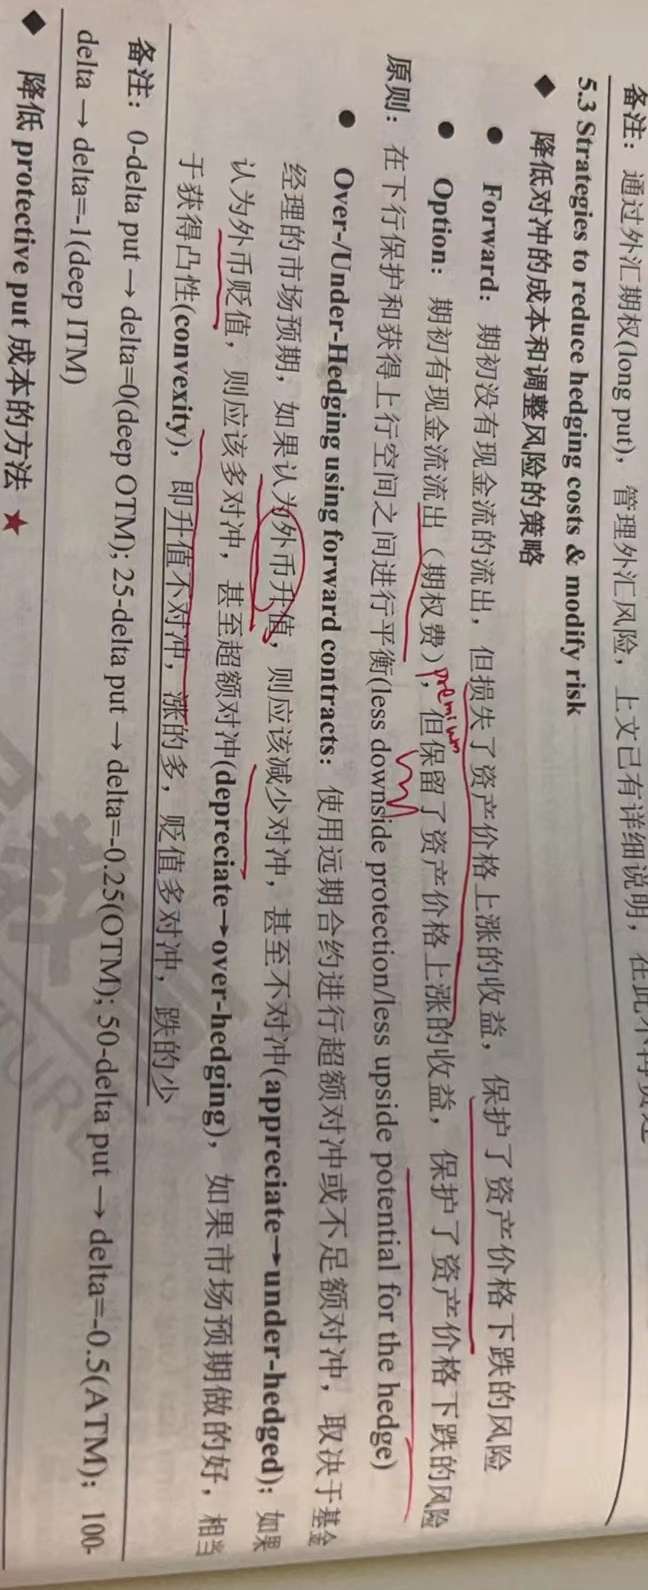 备注：通过外汇期权(long put)，管理外汇风险，上文已有详细说明，在此不再赘述
5.3 Strategies to reduce hedging costs & modify risk
◆ 降低对冲的成本和调整风险的策略
● Forward：期初没有现金流的流出，但损失了资产价格上涨的收益，保护了资产价格下跌的风险
● Option：期初有现金流流出（期权费），但保留了资产价格上涨的收益，保护了资产价格下跌的风险
premium
原则：在下行保护和获得上行空间之间进行平衡(less downside protection/less upside potential for the hedge)
● Over-/Under-Hedging using forward contracts：使用远期合约进行超额对冲或不足额对冲，取决于基金
经理的市场预期，如果认为外币升值，则应该减少对冲，甚至不对冲(appreciate→under-hedged)；如果
认为外币贬值，则应该多对冲，甚至超额对冲(depreciate→over-hedging)，如果市场预期做的好，相当
于获得凸性(convexity)，即升值不对冲，涨的多，贬值多对冲，跌的少
备注：0-delta put → delta=0(deep OTM); 25-delta put → delta=-0.25(OTM); 50-delta put → delta=-0.5(ATM)；100-
delta → delta=-1(deep ITM)
◆ 降低 protective put 成本的方法 ★